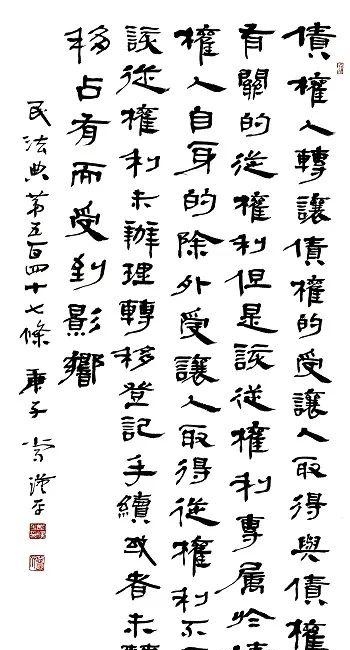 債權人轉讓債權的受讓人取得與債權
有關的從權利但是該從權利專屬於
權人自身的除外受讓人取得從權利不
該從權利未辦理轉移登記手續或者未
移占有而受到影響
民法典第五百四十七條 庚子